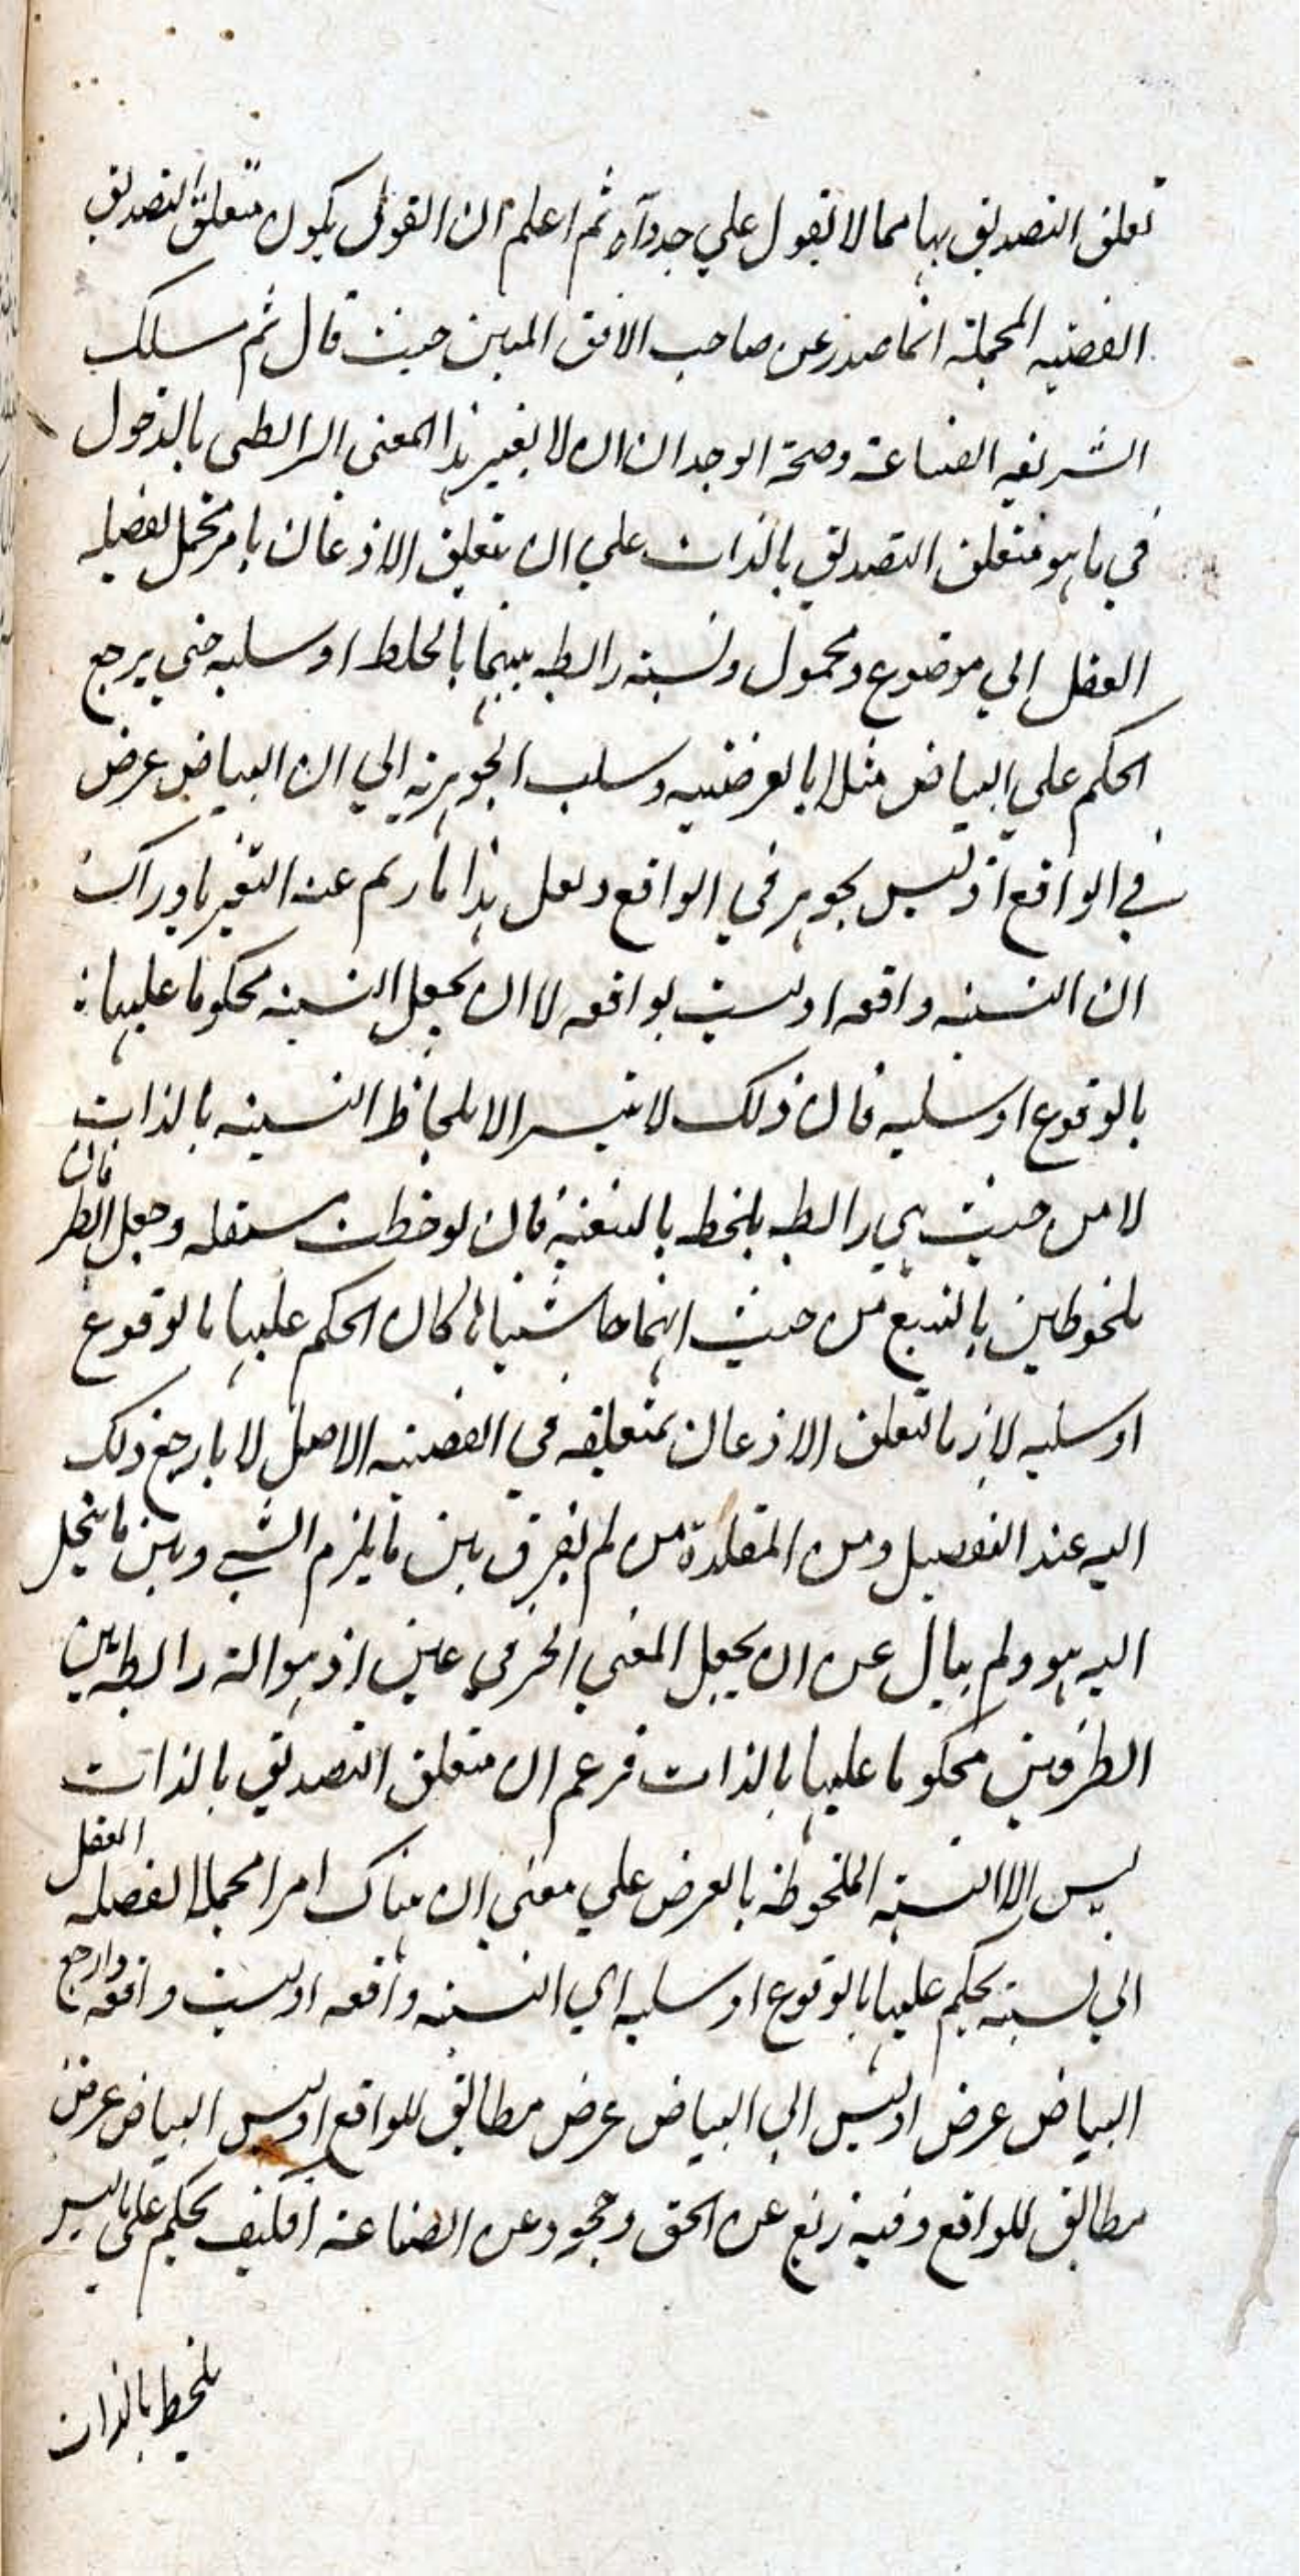 تعلق التصديق بها مما لا تقول علي جدواه ثم اعلم ان القول بكون متعلق التصديق
القضيه المجملة انما صدر عن صاحب الافق المبين حيث قال ثم سلك
الشريفه الصناعة وصحة الوجدان ان لا يغير هذا المعنى الرابطى بالدخول
في ما هو متعلق التصديق بالذات علي ان يتعلق الاذعان بامر مجمل يفصله
العقل الي موضوع ومحمول ونسبة رابطه بينهما بالخلط او سلبه حتي يرجع
الحكم علي البياض مثلا بالعرضيه وسلب الجوهرية الي ان البياض عرض
في الواقع او ليس بجوهر في الواقع ولعل هذا ما ريم عند التعبير بادراك
ان النسبة واقعه او ليست بواقعه لا ان يجعل النسبة محكوما عليها
بالوقوع او سلبه فان ذلك لا يتيسر الا بلحاظ النسبة بالذات
لا من حيث هي رابطه يلحظ بالتبعية فان لوحظت مستقله وجعل الطرفان
ملحوظين بالتبع من حيث انهما حاشيتاها كان الحكم عليها بالوقوع
او سلبه لازما لتعلق الاذعان بمتعلقه في القضيه الاصل لا ما رجع ذلك
اليه عند التفصيل ومن المقلدة من لم يفرق بين ما يلزم الشي وبين ما ينحل
اليه هو ولم يبال عن ان يجعل المعني الحرفي عين اذ هو الة رابطه بين
الطرفين محكوما عليها بالذات فزعم ان متعلق التصديق بالذات
ليس الا النسبة الملحوظة بالعرض علي معني ان هناك امرا مجملا يفصله العقل
الي نسبة يحكم عليها بالوقوع او سلبه اي النسبة واقعه او ليست واقعه وارجع
البياض عرض او ليس الي البياض عرض مطابق للواقع او ليس البياض عرض
مطابق للواقع وفيه زيغ عن الحق وجحود عن الصناعة افكيف يحكم علي ما ليس
يلحظ بالذات